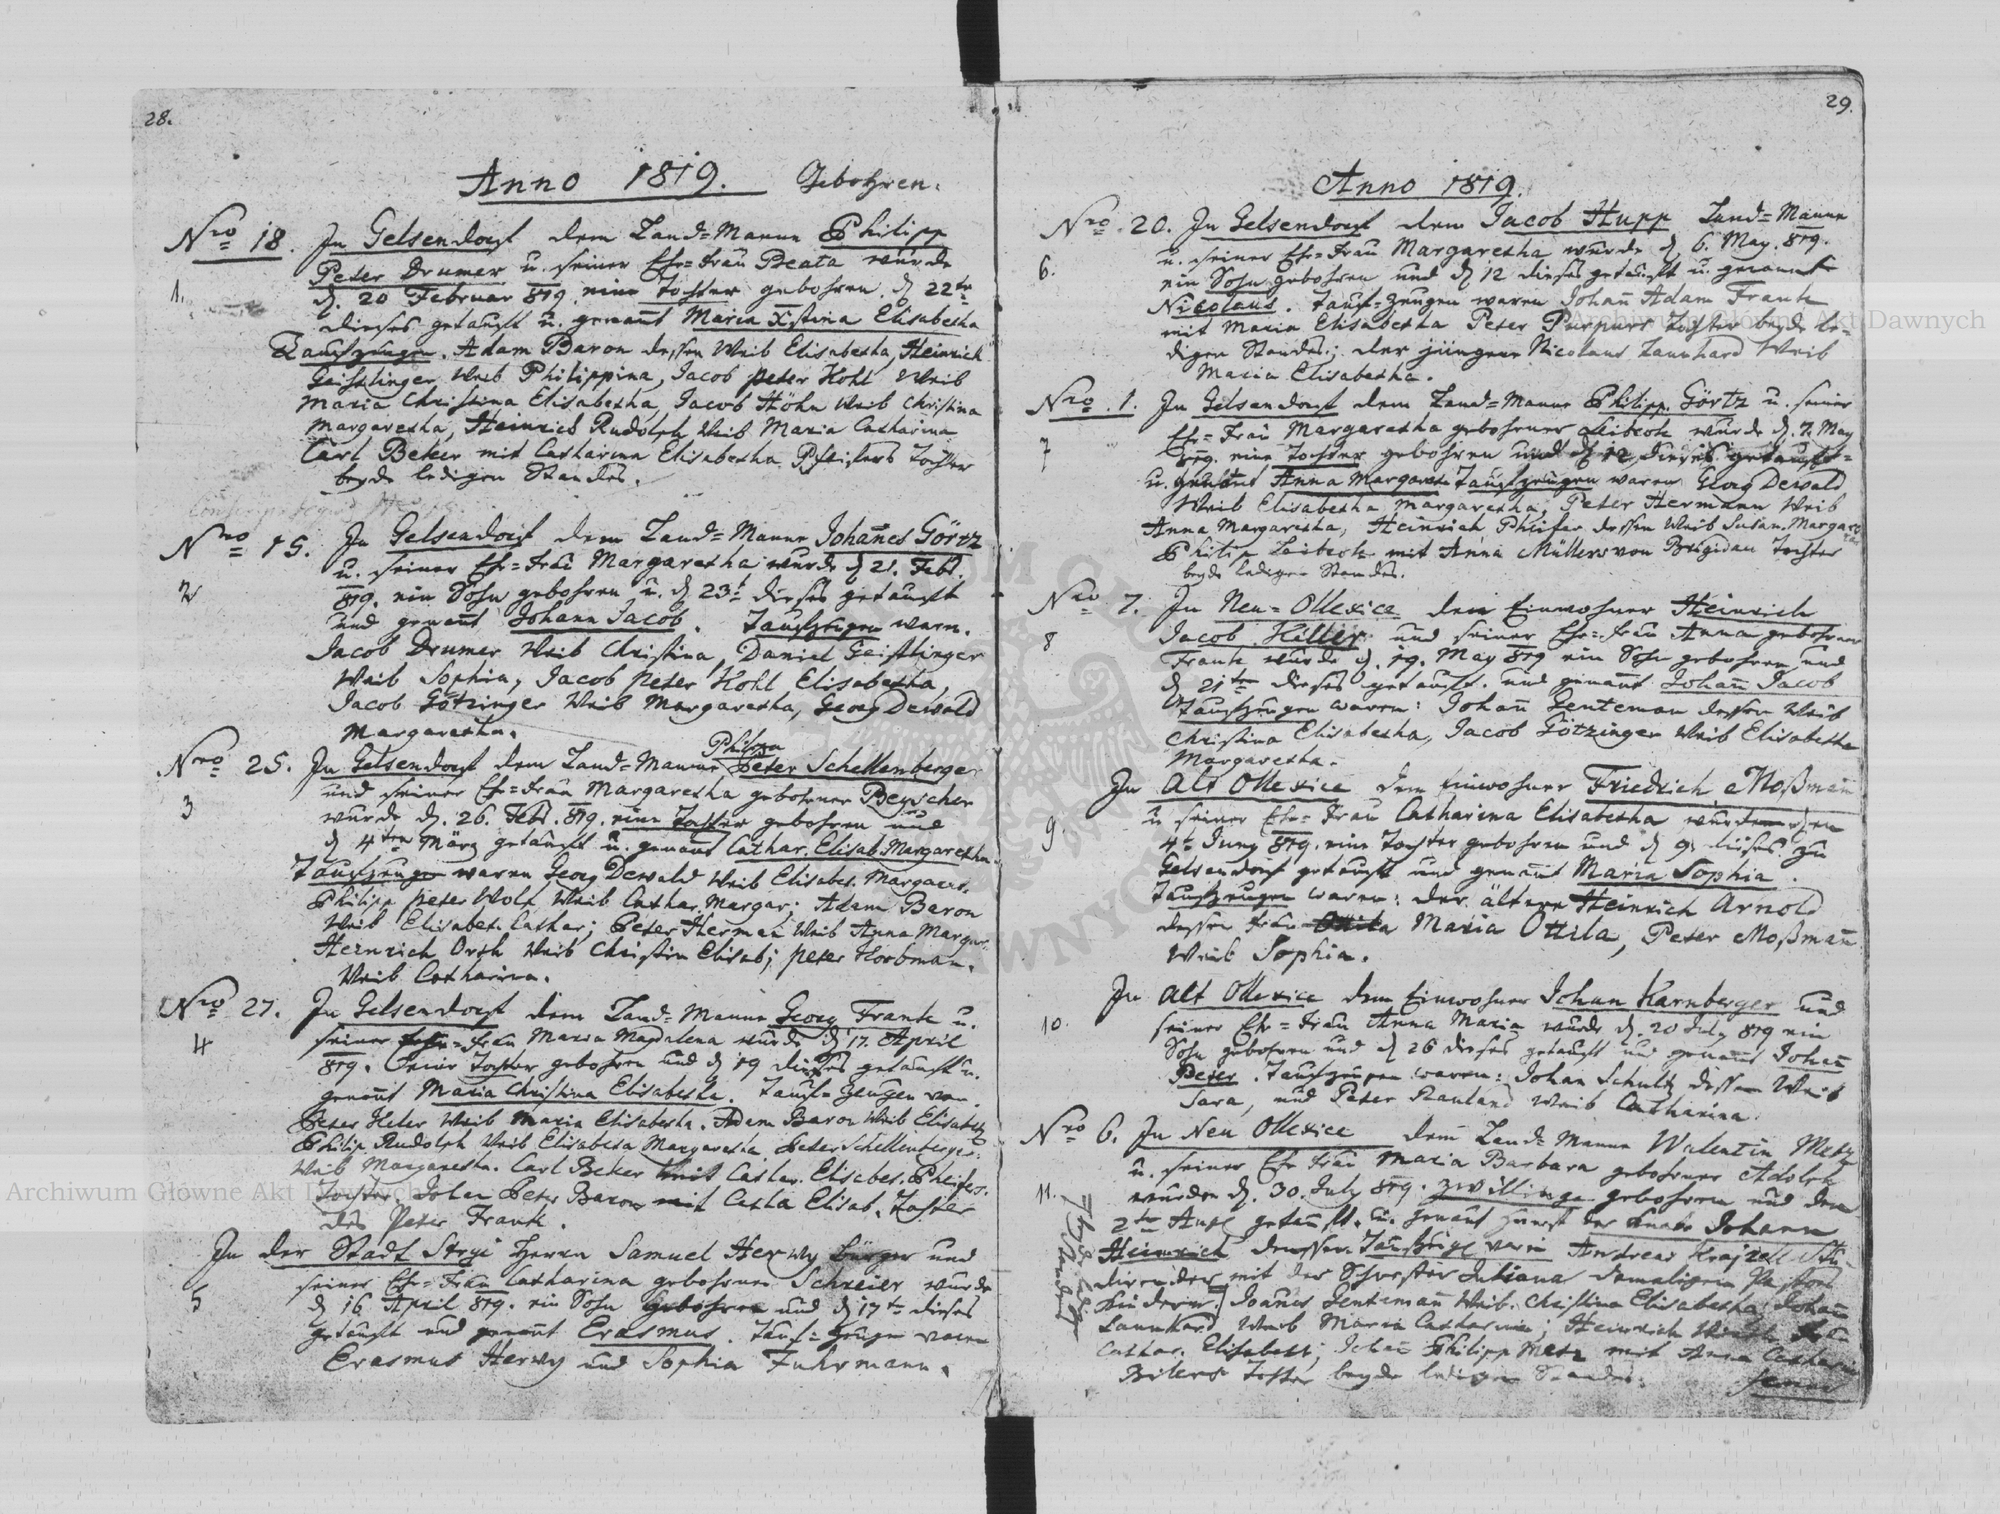 28.
Anno 1819. Gebohren.
Nro 18. In Gelsendorf dem Land=Manne Philipp
Peter Drumer u. seiner Ehe=Frau Beata wurde
1. d. 20 Februar 819. eine Tochter gebohren. d 22te
dieses getauft u. genant Maria Xstina Elisabetha
Taufzeugen. Adam Baron dessen Weib Elisabetha, Heinrich
Geistlinger Weib Philippina, Jacob peter Kohl Weib
Maria Christina Elisabetha, Jacob Höhn Weib Christina
Margaretha, Heinrich Rudolph Weib Maria Catharina
Carl Beker mit Catharina Elisabetha Pfeifers Tochter
beyde ledigen Standes.
Nro 15. In Gelsendorf dem Land=Manne Johanes Görtz
u. seiner Ehe=Frau Margaretha wurde d 21. Febr.
2 819. ein Sohn gebohren u. d 23t dieses getauft
und genant Johann Jacob. Taufzeugen warn.
Jacob Drumer Weib Christina, Daniel Geistlinger
Weib Sophia, Jacob peter Kohl Elisabetha,
Jacob Götzinger Weib Margaretha, Georg Dewald
Margaretha.
Philipp
Nro 25. In Gelsendorf dem Land=Manne, Peter Schellenberger
und seiner Ehe=Frau Margaretha gebohrner Beyscher
3 wurde d. 26. Febr. 819. eine Tochter gebohren und
d 4ten März getauft u. genant Cathar. Elisab. Margaretha.
Taufzeugen waren Georg Dewald Weib Elisabet. Margaret.
Philipp peter Wolf Weib Cathar. Margar; Adam Baron
Weib Elisabet. Cathar; Peter Herman Weib Anna Margar.
Heinrich Orth Weib Christin Elisab; peter Koobman.
Weib Catharina.
Nro 27. In Gelsendorf dem Land=Manne Georg Frank u.
seiner Ehe=Frau Maria Magdalena wurde d 17. April
4 819. eine Tochter gebohren und d 19 dieses getauft u.
genant Maria Christina Elisabetha. Tauf=Zeugen war.
Peter Heter Weib Maria Elisabetha. Adam Baron Weib Elisabet
Philip Rudolph Weib Elisabeta Margaretha, Peter Schellenberger.
Weib Margaretha. Carl Beker mit Cathar. Elisabet. Pfeifers.
Tochter. Johan Peter Baron mit Catha Elisab. Tochter
des Peter Frank.
In der Stadt Stryi Herrn Samuel Herwy Bürger und
seiner Ehe=Frau Catharina gebohrner Schreier wurde
5 d 16 April 819. ein Sohn gebohren und d 17te dieses
getauft und genant Erasmus. Tauf=Zeugen waren
Erasmus Herwy und Sophia Fuhrmann.
29.
Anno 1819.
Nro 20. In Gelsendorf dem Jacob Hupp Land=Manne
u. seiner Ehe=Frau Margaretha wurde d. 6. May. 819.
6. ein Sohn gebohren und d 12 dieses getauft u. genannt
Nicolaus. Tauf=Zeugen waren Johan Adam Frank
mit Maria Elisabetha Peter Purpurs Tochter beyde le=
digen Standes; der jüngere Nicolaus Launhard Weib
Maria Elisabetha.
Nro. 1. In Gelsendorf dem Land=Manne Philipp Görtz u. seiner
Ehe=Frau Margaretha gebohrner Leibrok wurde d. 7. May
7 819. eine Tochter gebohren und d 12 dieses getauft
u. genant Anna Margaret: Taufzeugen waren Georg Dewald
Weib Elisabetha Margaretha, Peter Hermann Weib
Anna Margaretha, Heinrich Pfeifer dessen Weib Susan. Margare
tha
Philip Leibrok mit Anna Müllers von Brigidau Tochter
beyde ledigen Standes.
Nro 7. In Neu=Ollexice dem Einwohner Heinrich
Jacob Hiller und seiner Ehe=Frau Anna gebohrner
8 Frank wurde d. 19. May 819 ein Sohn gebohren und
d 21ten dieses getauft. und genant Johan Jacob
Taufzeugen waren: Johan Genteman dessen Weib
Christina Elisabetha, Jacob Götzinger Weib Elisabetha
Margaretha.
In Alt Ollexice dem Einwohner Friedrich Moßman
u seiner Ehe=Frau Catharina Elisabetha wurde den
9. 4t Juny 819. eine Tochter gebohren und d 9 dieses zu
Gelsendorf getauft und genant Maria Sophia.
Taufzeugen waren: der ältere Heinrich Arnold
dessen Frau Maria Ottila, Peter Moßman
Weib Sophia.
In Alt Ollexice dem Einwohner Johann Karnberger und
10. seiner Ehe=Frau Anna Maria wurde d. 20 July 819 ein
Sohn gebohren und d 26 dieses getauft und genannt Johan
Peter. Taufzeugen waren: Johan Schultz dessen Weib
Sara, und Peter Rauland Weib Catharina.
Nro 6. In Neu Ollexice dem Land=Manne Walentin Metz
u. seiner Ehe Frau Maria Barbara gebohrner Adolph
11. wurden d. 30. July 819. zwillinge gebohren und den
2te Aug getauft. u. genant der Knabe Johann
Heinrich dessen Taufzeugen waren Andreas Stu=
direnden mit der Schwester Juliana damaligen Pastors
Kindern. Joanes Genteman Weib. Christina Elisabetha; Johan
Launhard Weib Maria Catharina; Heinrich
Cathar. Elisabeth; Johan Philipp Metz mit Anna Catharin
Bilers Tochter beyde ledigen Standes.
Archiwum Główne Akt Dawnych
Archiwum Główne Akt Dawnych